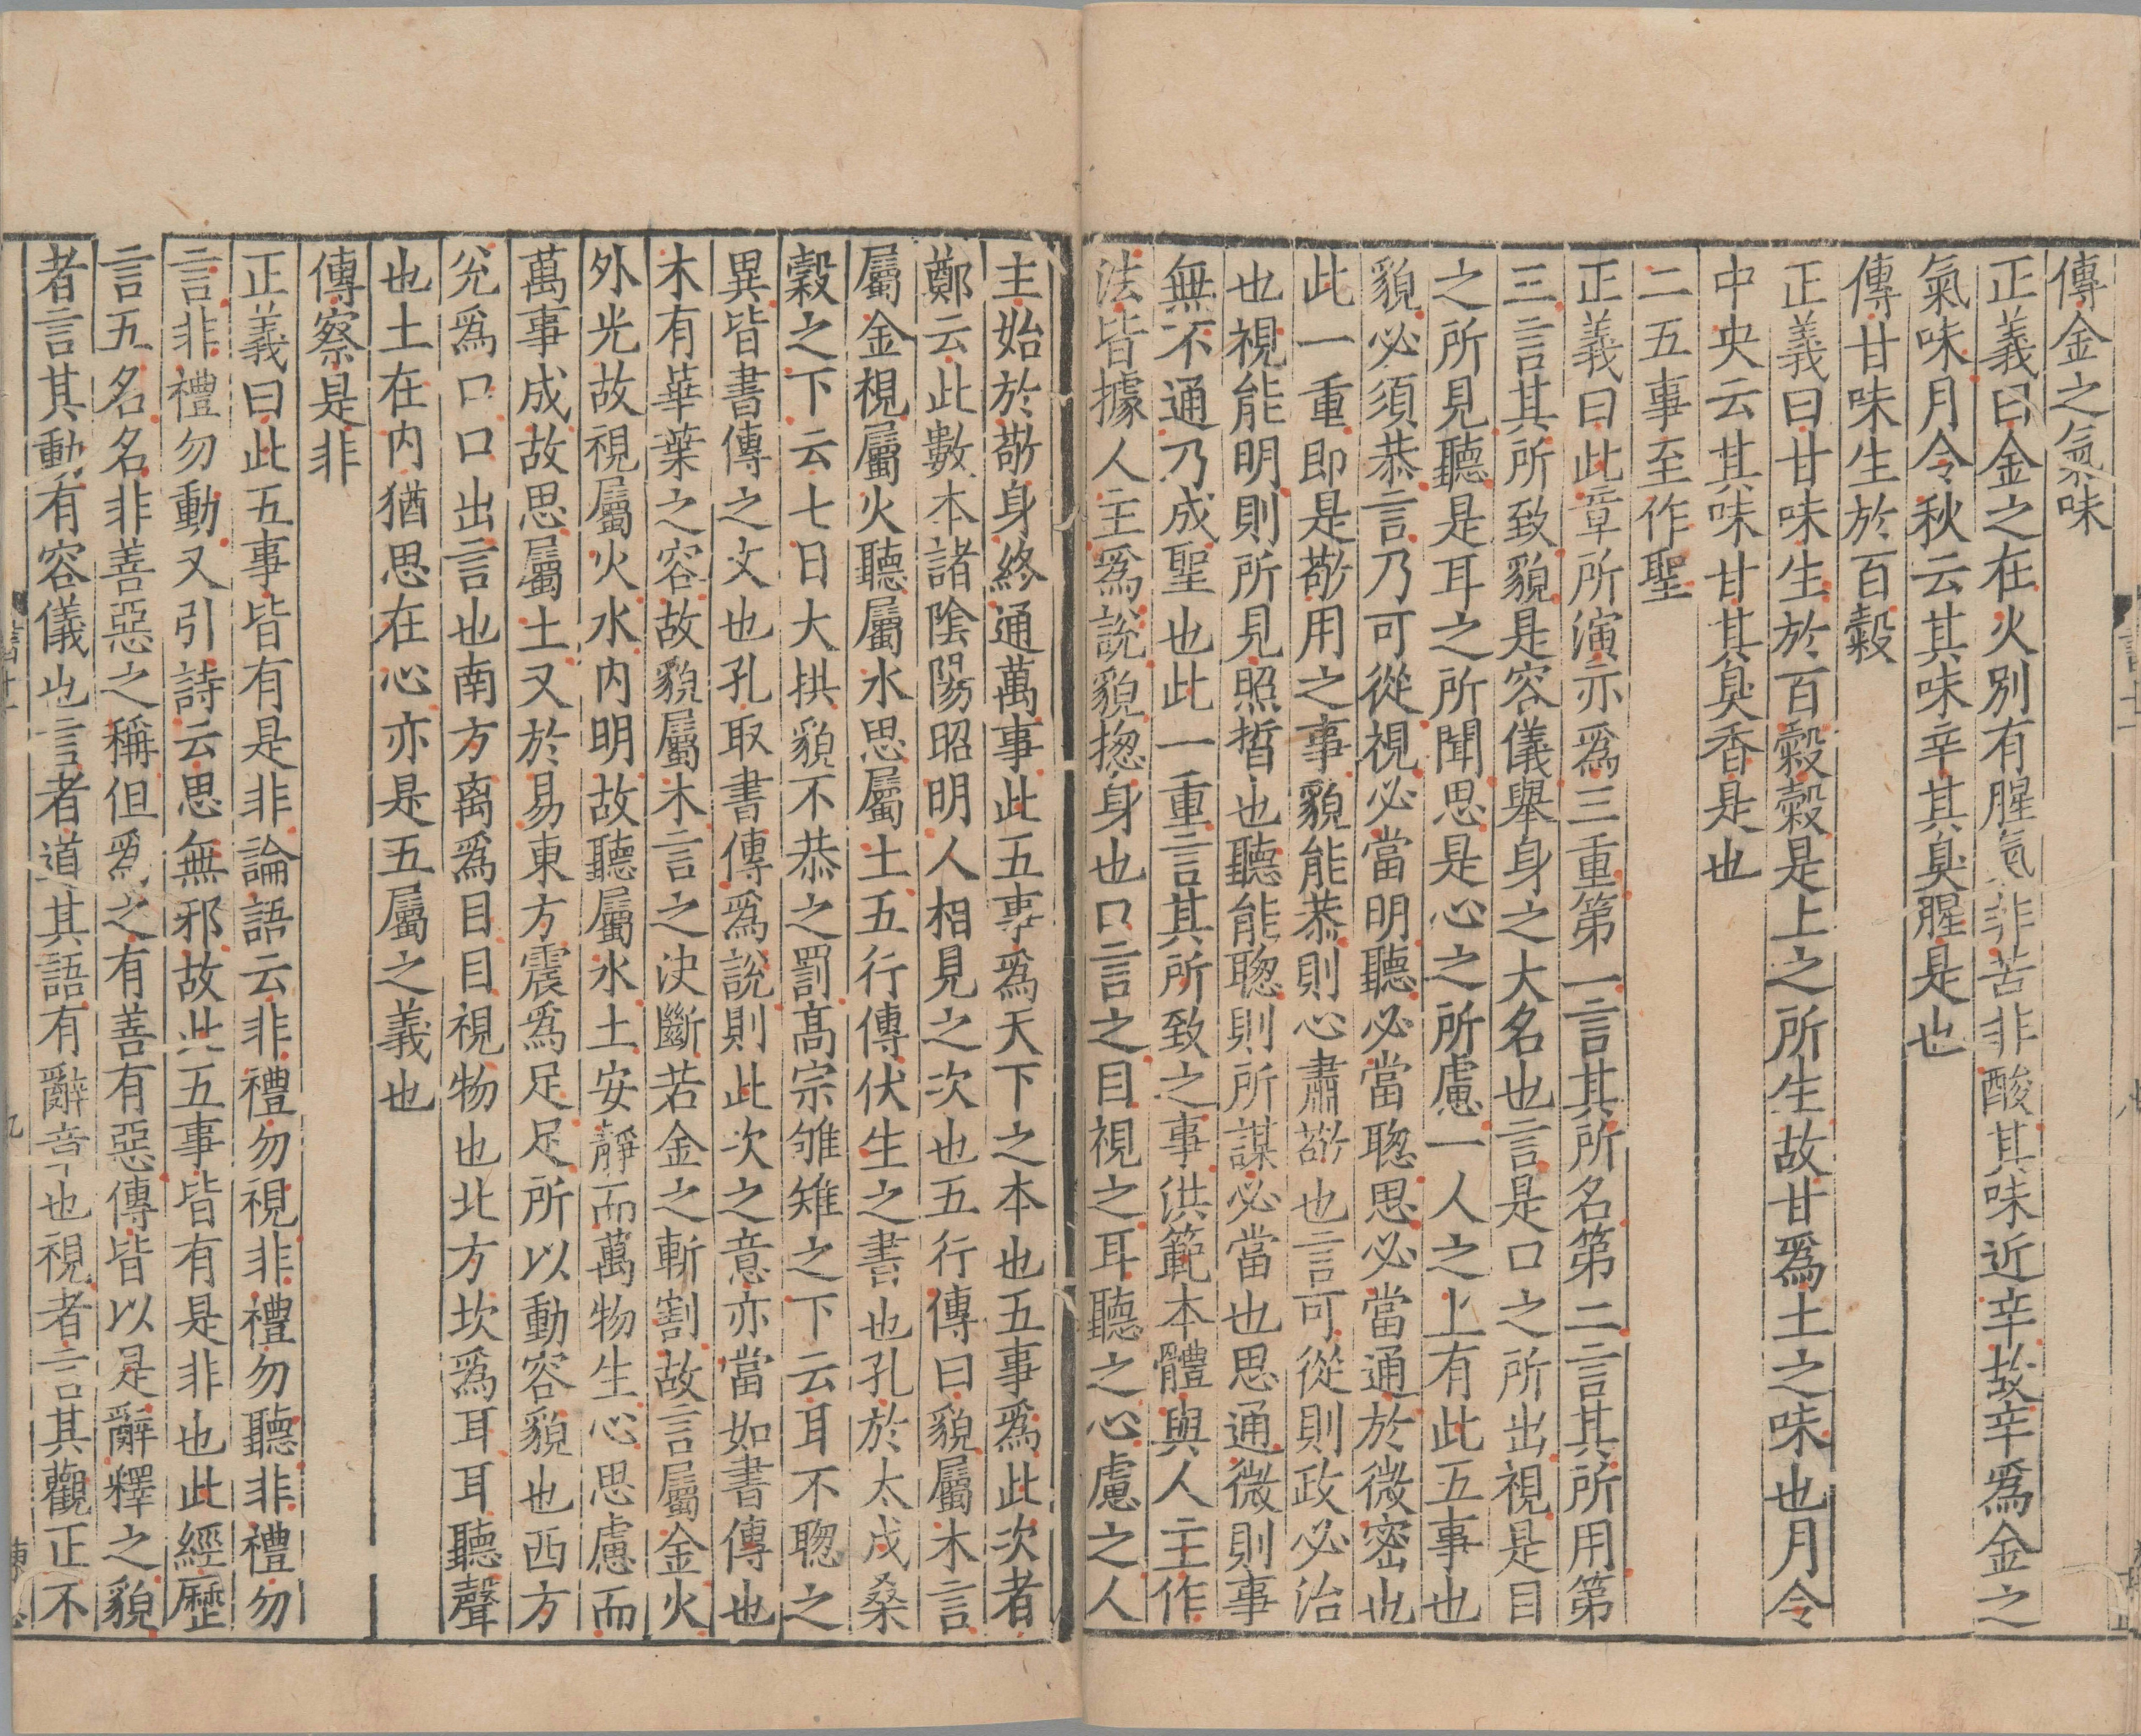 傳金之氣味
正義曰金之在火別有腥氣非苦非酸其味近辛故辛爲金之
氣味月令秋云其味辛其臭腥是也
傳甘味生於百穀
正義曰甘味生於百穀穀是土之所生故甘爲土之味也月令
中央云其味甘其臭香是也
二五事至作聖
正義曰此章所演亦爲三重第一言其所名第二言其所用第
三言其所致貌是容儀舉身之大名也言是口之所出視是目
之所見聽是耳之所聞思是心之所慮一人之上有此五事也
貌必須恭言乃可從視必當明聽必當聦思必當通於微密也
此一重即是敬用之事貌能恭則心肅敬也言可從則政必治
也視能明則所見照晢也聽能聦則所謀必當也思通微則事
無不通乃成聖也此一重言其所致之事洪範本體與人主作
法皆據人主爲說貌揔身也口言之目視之耳聽之心慮之人
主始於敬身終通萬事此五事爲天下之本也五事爲此次者
鄭云此數本諸陰陽昭明人相見之次也五行傳曰貌屬木言
屬金視屬火聽屬水思屬土五行傳伏生之書也孔於太戊桑
穀之下云七日大拱貌不恭之罰高宗雊雉之下云耳不聦之
異皆書傳之文也孔取書傳爲說則此次之意亦當如書傳也
木有華葉之容故貌屬木言之决斷若金之斬割故言屬金火
外光故視屬火水内明故聽屬水土安靜而萬物生心思慮而
萬事成故思屬土又於易東方震爲足足所以動容貌也西方
兊爲口口出言也南方离爲目目視物也北方坎爲耳耳聽聲
也土在内猶思在心亦是五屬之義也
傳察是非
正義曰此五事皆有是非論語云非禮勿視非禮勿聽非禮勿
言非禮勿動又引詩云思無邪故此五事皆有是非也此經歷
言五名名非善惡之稱但爲之有善有惡傳皆以是辭釋之貌
者言其動有容儀也言者道其語有辭章也視者言其觀正不